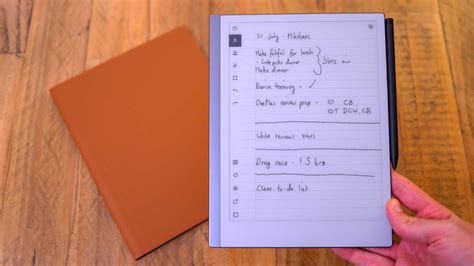 31 July - Milestones
Make falafel for lunch
- Late pats dinner
Make dinner
3hrs min
Device training - ✓
OnePlus review prep - 10 CB
10T DCW, CB
Write reviews 4hrs
Drag race - 1.5 hrs
Clear to-do list.